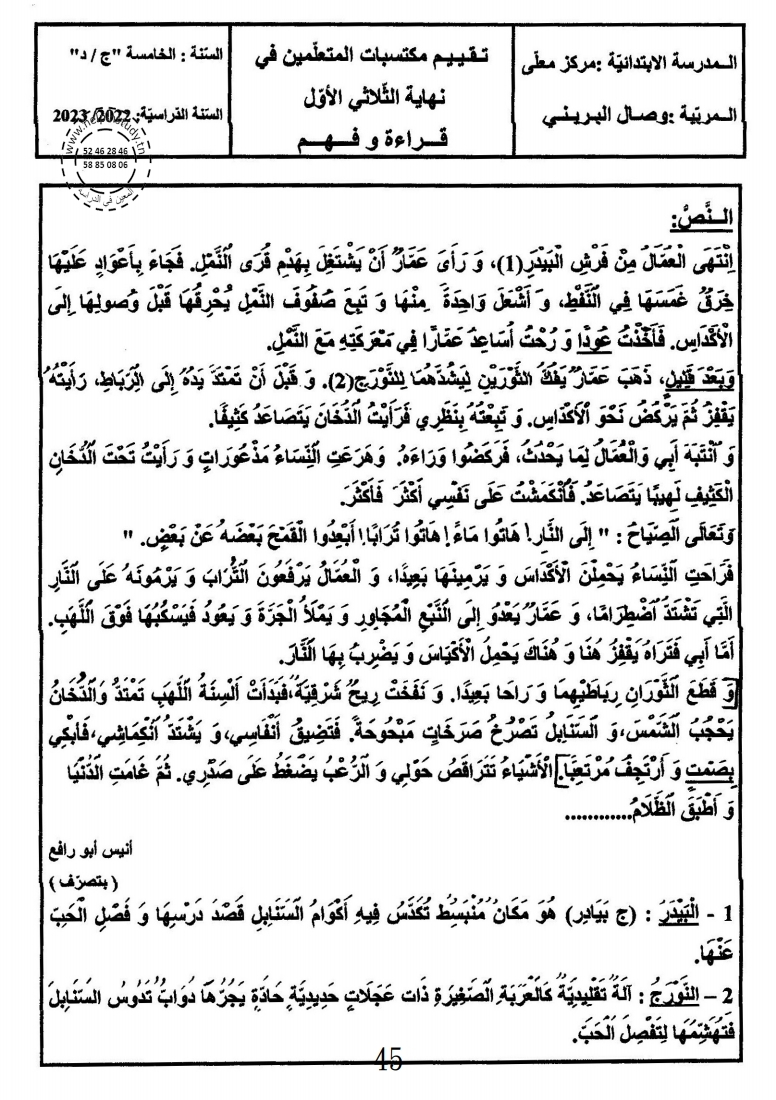 الـمدرسة الابتدائيّة :مركز معلّى
الـمربّية :وصال البريني
تـقـيـيـم مكتسبات المتعلّمين في
نهاية الثّلاثي الأوّل
قـــراءة و فـــهـــم
السّنة : الخامسة "ج / د"
السّنة الدّراسيّة: 2022/ 2023
52 46 28 46
58 85 08 06
الـنَّصُّ:
اِنْتَهَى الْعُمَّالُ مِنْ فَرْشِ الْبَيْدَرِ(1)، وَ رَأَى عَمَّارٌ أَنْ يَشْتَغِلَ بِهَدْمِ قُرَى النَّمْلِ. فَجَاءَ بِأَعْوَادٍ عَلَيْهَا
خِرَقٌ غَمَسَهَا فِي النَّفْطِ، وَ أَشْعَلَ وَاحِدَةً مِنْهَا وَ تَبِعَ صُفُوفَ النَّمْلِ يُحْرِقُهَا قَبْلَ وُصُولِهَا إِلَى
الْأَكْدَاسِ. فَأَخَذْتُ عُودًا وَ رُحْتُ أُسَاعِدُ عَمَّارًا فِي مَعْرَكَتِهِ مَعَ النَّمْلِ.
وَبَعْدَ قَلِيلٍ، ذَهَبَ عَمَّارٌ يَفُكُّ الثَّوْرَيْنِ لِيَشُدَّهُمَا لِلنَّوْرَجِ(2). وَ قَبْلَ أَنْ تَمْتَدَّ يَدُهُ إِلَى الرِّبَاطِ، رَأَيْتُهُ
يَقْفِزُ ثُمَّ يَرْكُضُ نَحْوَ الْأَكْدَاسِ. وَ تَبِعْتُهُ بِنَظَرِي فَرَأَيْتُ الدُّخَانَ يَتَصَاعَدُ كَثِيفًا.
وَ انْتَبَهَ أَبِي وَالْعُمَّالُ لِمَا يَحْدُثُ، فَرَكَضُوا وَرَاءَهُ. وَهَرَعَتِ النِّسَاءُ مَذْعُورَاتٍ وَ رَأَيْتُ تَحْتَ الدُّخَانِ
الْكَثِيفِ لَهِيبًا يَتَصَاعَدُ. فَانْكَمَشْتُ عَلَى نَفْسِي أَكْثَرَ فَأَكْثَرَ.
وَتَعَالَى الصِّيَاحُ : " إِلَى النَّارِ! هَاتُوا مَاءً! هَاتُوا تُرَابًا! أَبْعِدُوا الْقَمْحَ بَعْضَهُ عَنْ بَعْضٍ. "
فَرَاحَتِ النِّسَاءُ يَحْمِلْنَ الْأَكْدَاسَ وَ يَرْمِينَهَا بَعِيدًا، وَ الْعُمَّالُ يَرْفَعُونَ التُّرَابَ وَ يَرْمُونَهُ عَلَى النَّارِ
الَّتِي تَشْتَدُّ اضْطِرَامًا، وَ عَمَّارٌ يَعْدُو إِلَى النَّبْعِ الْمُجَاوِرِ وَ يَمْلَأُ الْجَرَّةَ وَ يَعُودُ فَيَسْكُبُهَا فَوْقَ اللَّهَبِ.
أَمَّا أَبِي فَتَرَاهُ يَقْفِزُ هُنَا وَ هُنَاكَ يَحْمِلُ الْأَكْيَاسَ وَ يَضْرِبُ بِهَا النَّارَ.
[وَ قَطَعَ الثَّوْرَانِ رِبَاطَيْهِمَا وَ رَاحَا بَعِيدًا. وَ نَفَخَتْ رِيحٌ شَرْقِيَّةٌ،فَبَدَأَتْ أَلْسِنَةُ اللَّهَبِ تَمْتَدُّ وَالدُّخَانُ
يَحْجُبُ الشَّمْسَ،وَ السَّنَابِلُ تَصْرُخُ صَرَخَاتٍ مَبْحُوحَةً. فَتَضِيقُ أَنْفَاسِي،وَ يَشْتَدُّ انْكِمَاشِي،فَأَبْكِي
بِصَمْتٍ وَ أَرْتَجِفُ مُرْتَعِبًا.] الْأَشْيَاءُ تَتَرَاقَصُ حَوْلِي وَ الرُّعْبُ يَضْغَطُ عَلَى صَدْرِي. ثُمَّ غَامَتِ الدُّنْيَا
وَ أَطْبَقَ الظَّلَامُ............
أنيس أبو رافع
( بتصرّف )
1 - الْبَيْدَرُ : (ج بَيَادِر) هُوَ مَكَانٌ مُنْبَسِطٌ تُكَدَّسُ فِيهِ أَكْوَامُ السَّنَابِلِ قَصْدَ دَرْسِهَا وَ فَصْلِ الْحَبِّ
عَنْهَا.
2 – النَّوْرَجُ : آلَةٌ تَقْلِيدِيَّةٌ كَالْعَرَبَةِ الصَّغِيرَةِ ذَات عَجَلَاتٍ حَدِيدِيَّةٍ حَادَّةٍ يَجُرُّهَا دَوَابٌّ تَدُوسُ السَّنَابِلَ
فَتُهَشِّمُهَا لِتَفْصِلَ الْحَبَّ.
45